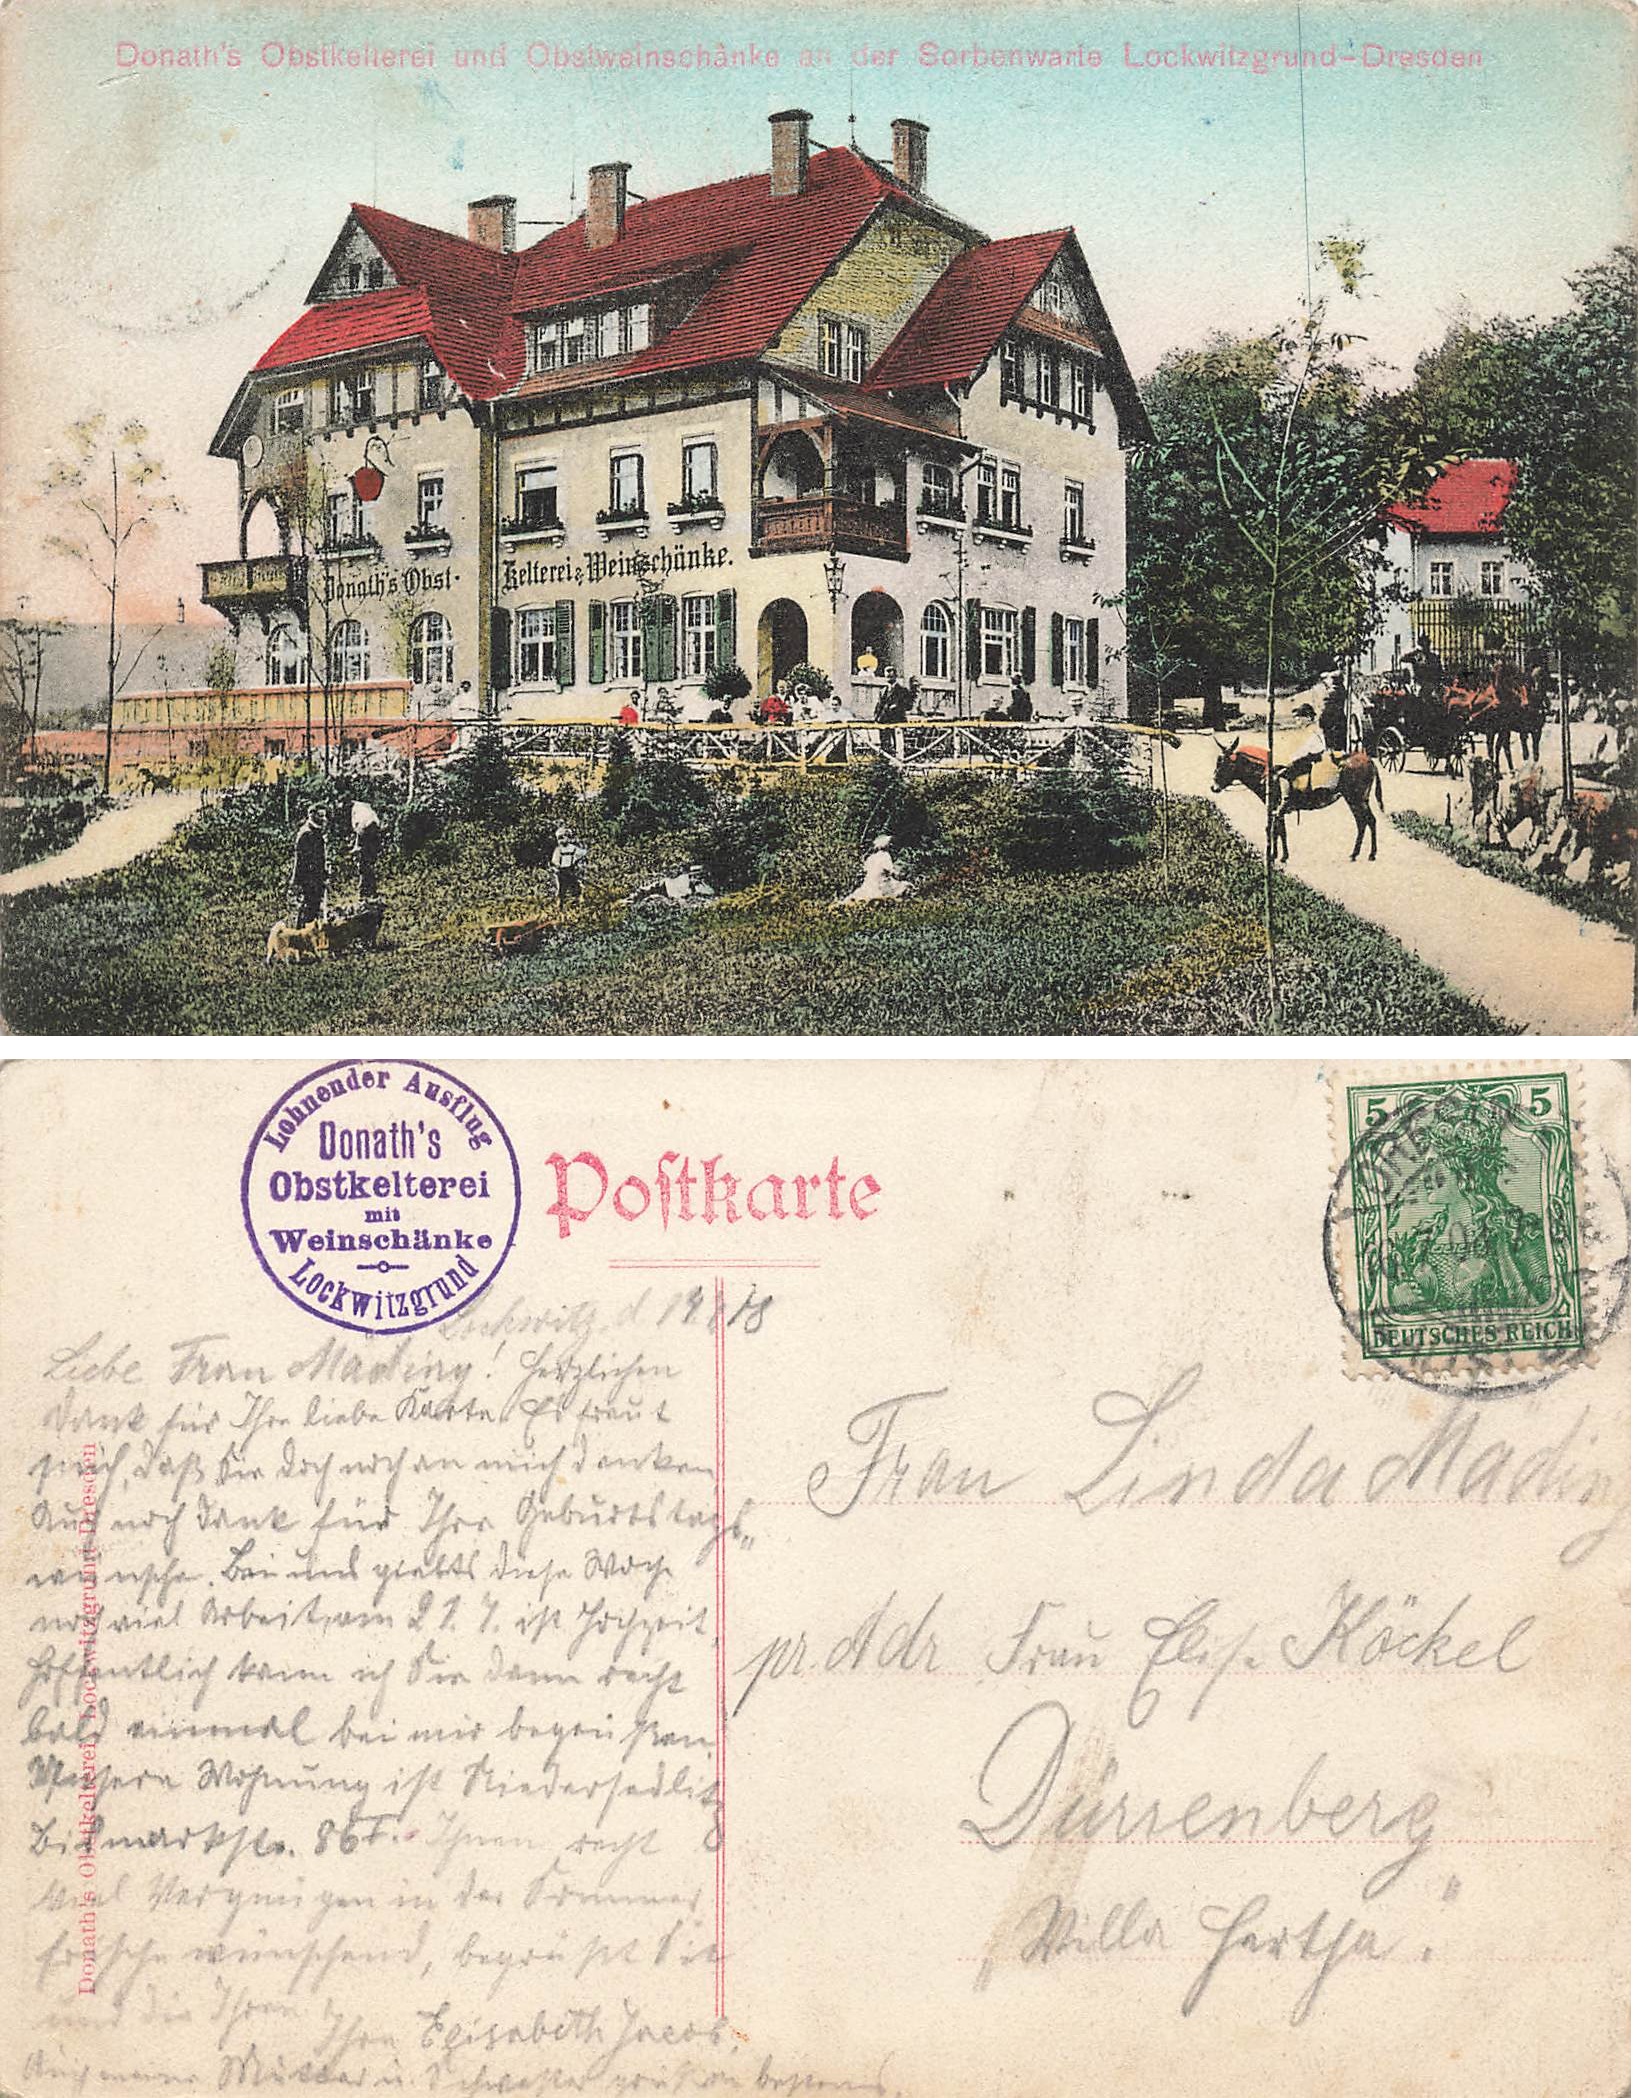 Donath's Obstkelterei und Obstweinschänke an der Sorbenwarte Lockwitzgrund-Dresden
Donath's Obst-
Kelterei & Weinschänke.
Lohnender Ausflug
Donath's
Obstkelterei
mit
Weinschänke
Lockwitzgrund
Postkarte
5 5
DEUTSCHES REICH
Lockwitz, d. 19
Liebe Frau Mading! Herzlichen
Dank für Ihre liebe Karte. Es freut
mich, daß Sie doch noch an mich denken
Auch noch Dank für Ihre Geburtstags-
wünsche. Bei uns giebts diese Woche
noch viel Arbeit, am 21. 7. ist Hochzeit.
Hoffentlich kann ich Sie dann recht
bald einmal bei mir begrüßen.
Unsere Wohnung ist Niedersedlitz
Bismarkstr. 86 I. Ihnen recht
viel Vergnügen in der Sommer
frische wünschend, begrüßt Sie
und die Ihren
Ihre Elisabeth Jacob.
Auch meine Mutter u. Schwester grüßen bestens.
Donath's Obstkelterei Lockwitzgrund-Dresden
Frau Linda Mading
pr. Adr Frau Elise Köckel
Dürrenberg
„Villa Hertha."